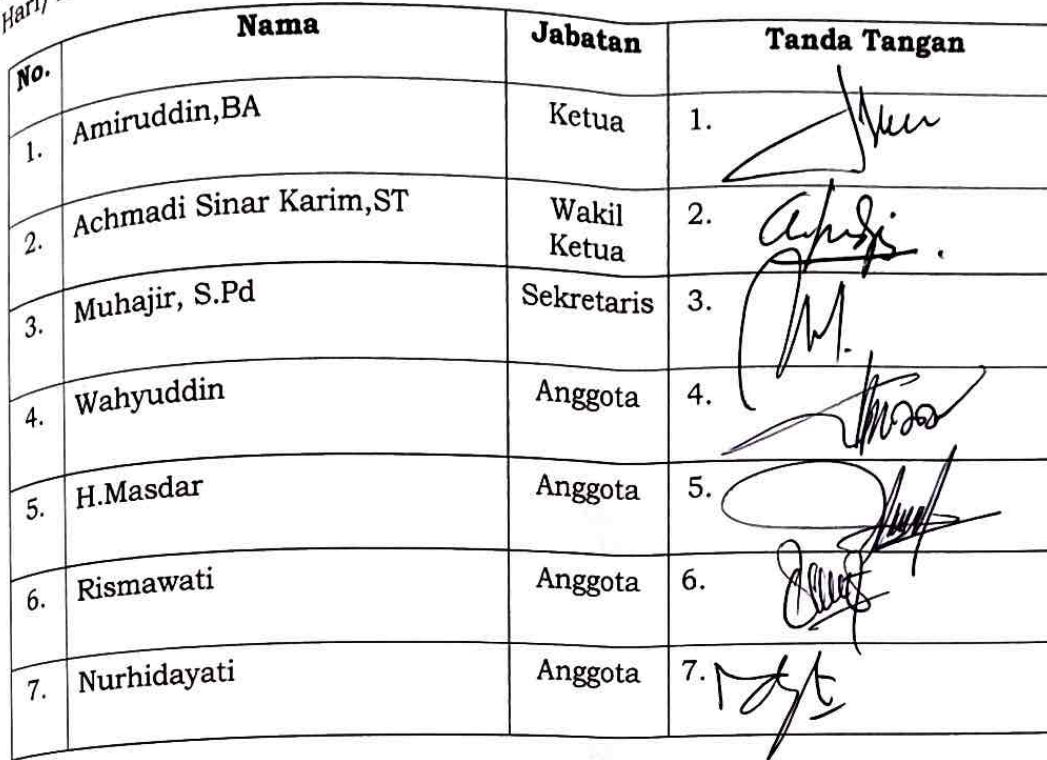 Hari/
No. Nama Jabatan Tanda Tangan
1. Amiruddin,BA Ketua 1.
2. Achmadi Sinar Karim,ST Wakil Ketua 2.
3. Muhajir, S.Pd Sekretaris 3.
4. Wahyuddin Anggota 4.
5. H.Masdar Anggota 5.
6. Rismawati Anggota 6.
7. Nurhidayati Anggota 7.